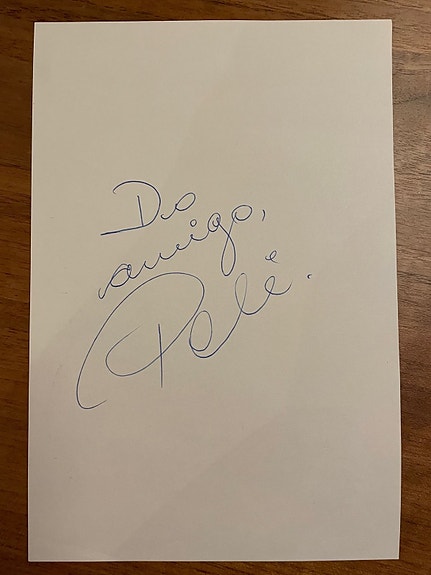 Do
amigo,
Pelé.